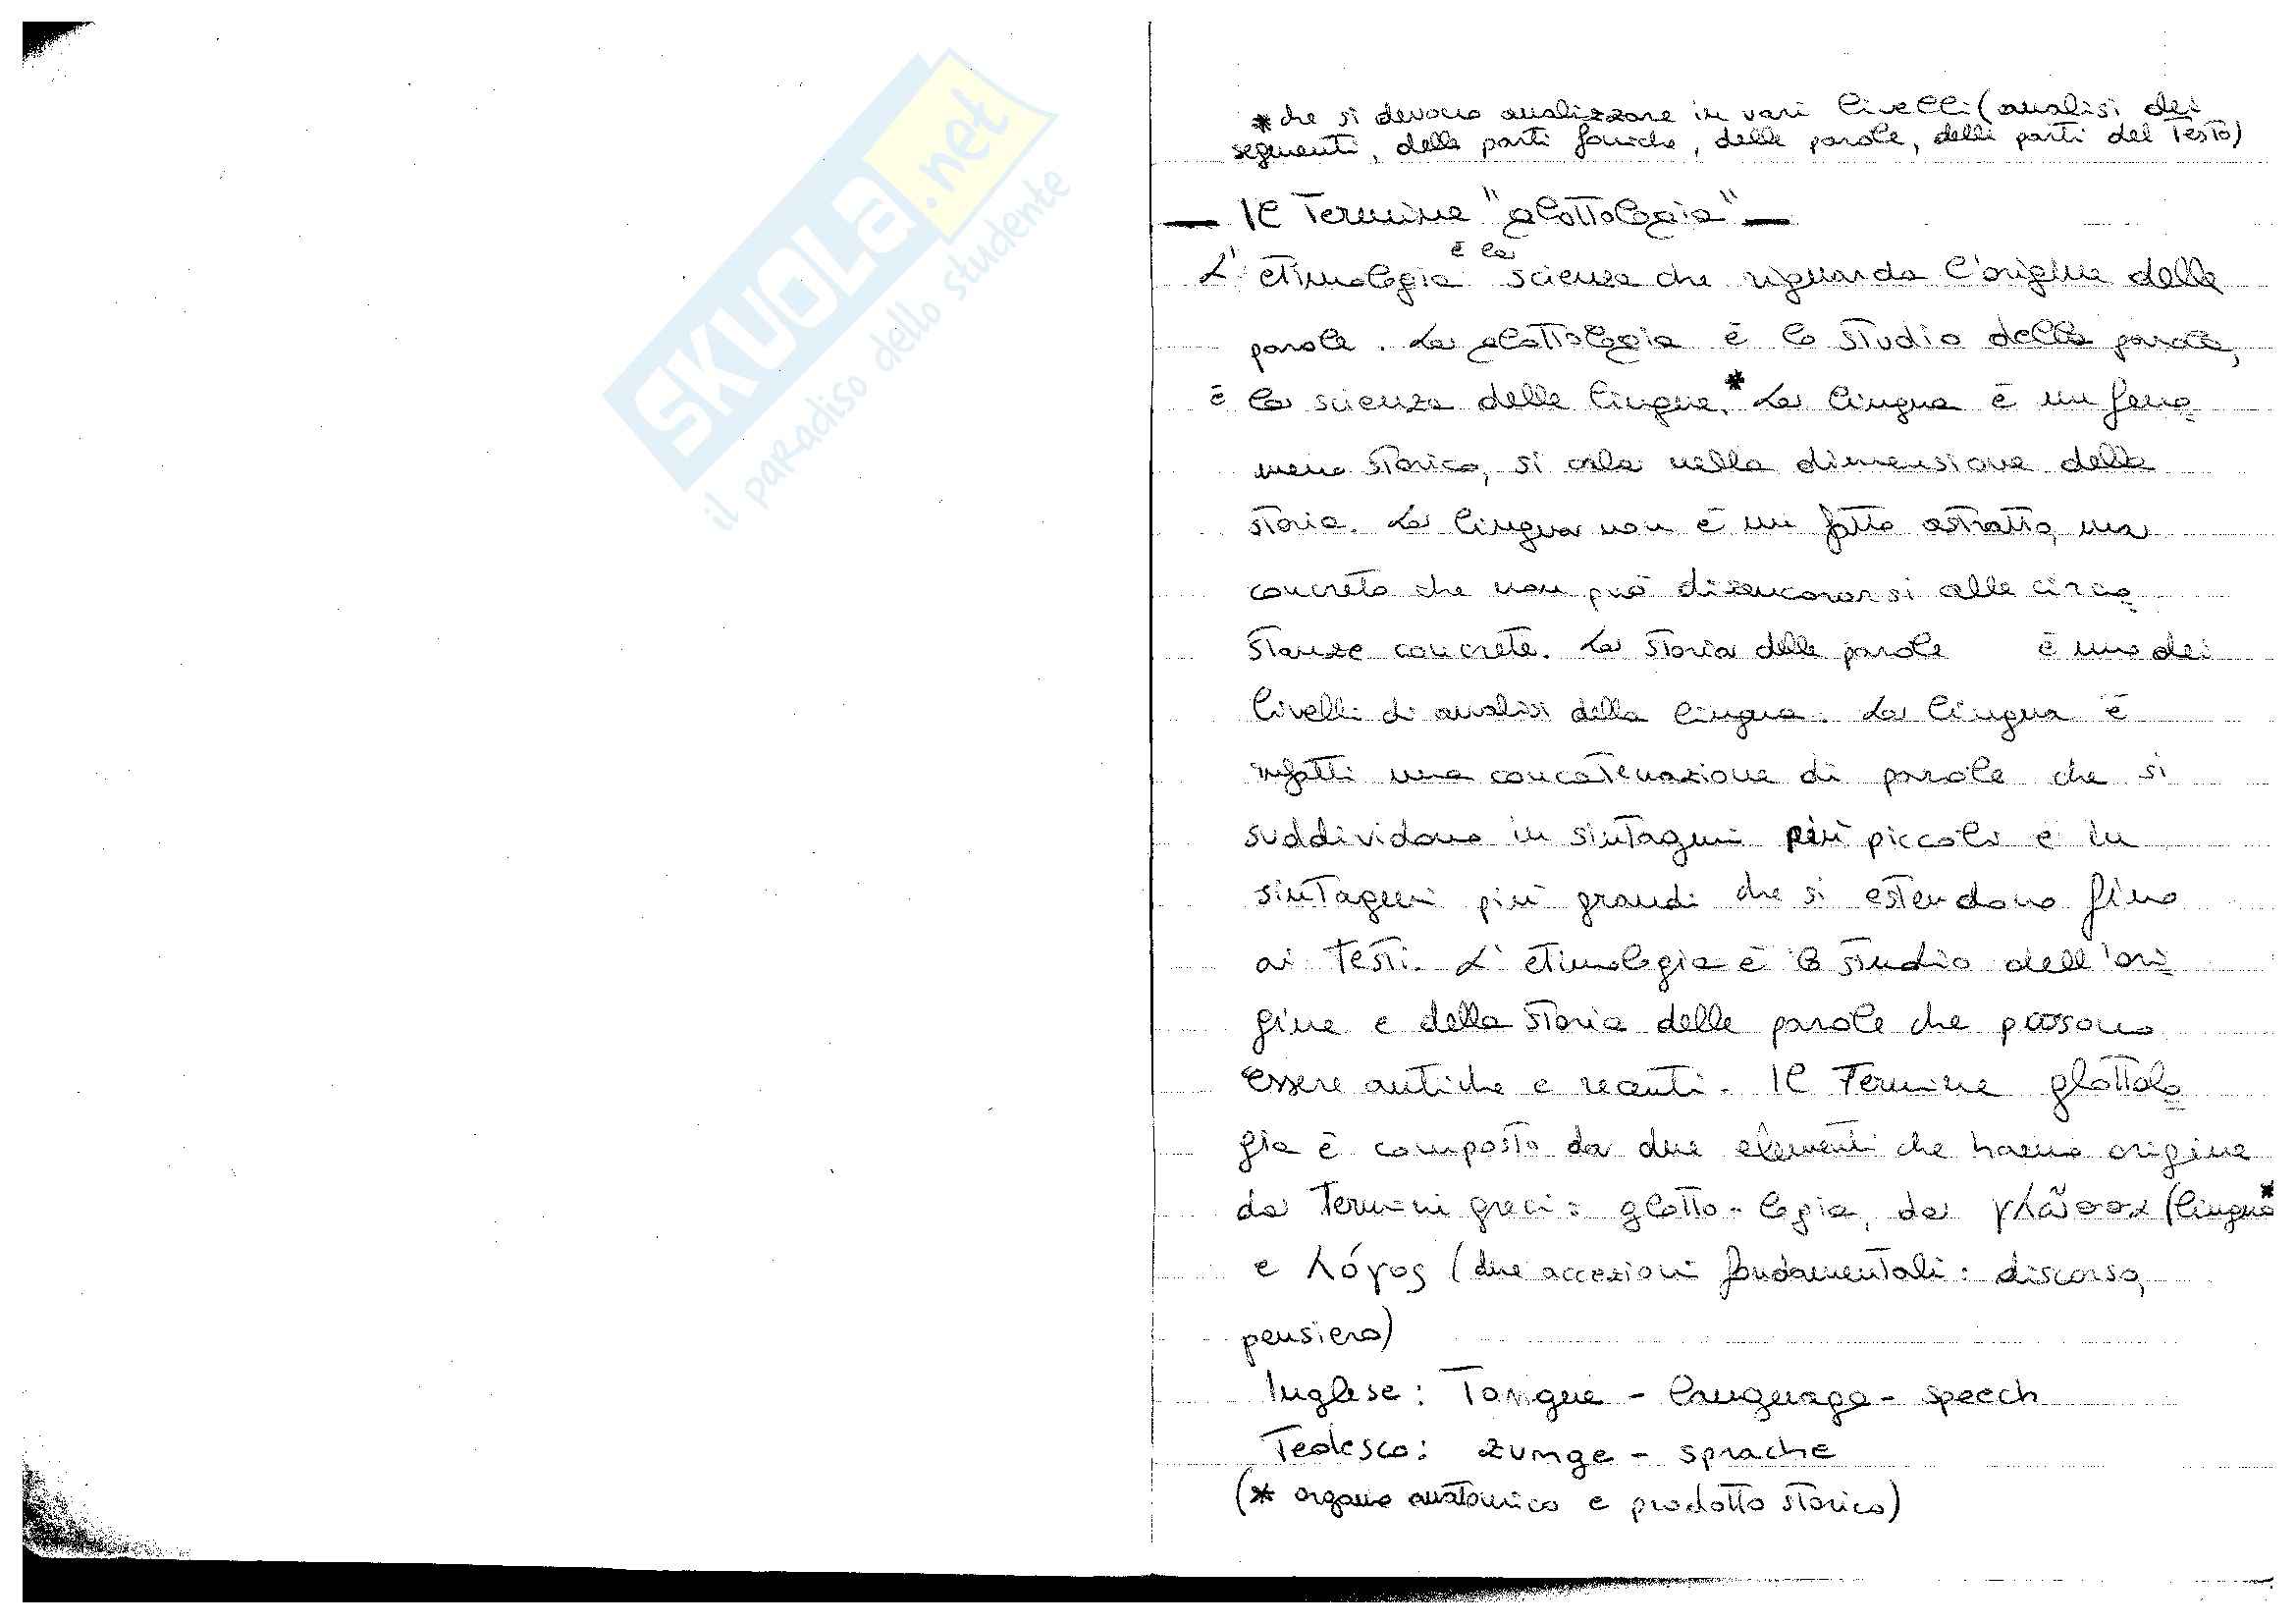 SKUOLA.net
il paradiso dello studente
*che si devono analizzare in vari livelli (analisi dei
segmenti, delle parti foniche, delle parole, delle parti del testo)
— Il termine "glottologia" —
L'etimologia è la scienza che riguarda l'origine delle
parole. La glottologia è lo studio delle parole,
è la scienza delle lingue.* La lingua è un feno
meno storico, si cala nella dimensione della
storia. La lingua non è un fatto astratto, ma
concreto che non può disancorarsi alle circo
stanze concrete. La storia delle parole è uno dei
livelli di analisi della lingua. La lingua è
infatti una concatenazione di parole che si
suddividono in sintagmi più piccoli e in
sintagmi più grandi che si estendono fino
ai testi. L'etimologia è lo studio dell'ori
gine e della storia delle parole che possono
essere antiche e recenti. Il termine glottolo
gia è composto da due elementi che hanno origine
da termini greci: glotto-logia, da γλῶσσα (lingua*
e λόγος (due accezioni fondamentali: discorso,
pensiero)
Inglese: Tongue - language - speech
Tedesco: zunge - sprache
(* organo anatomico e prodotto storico)